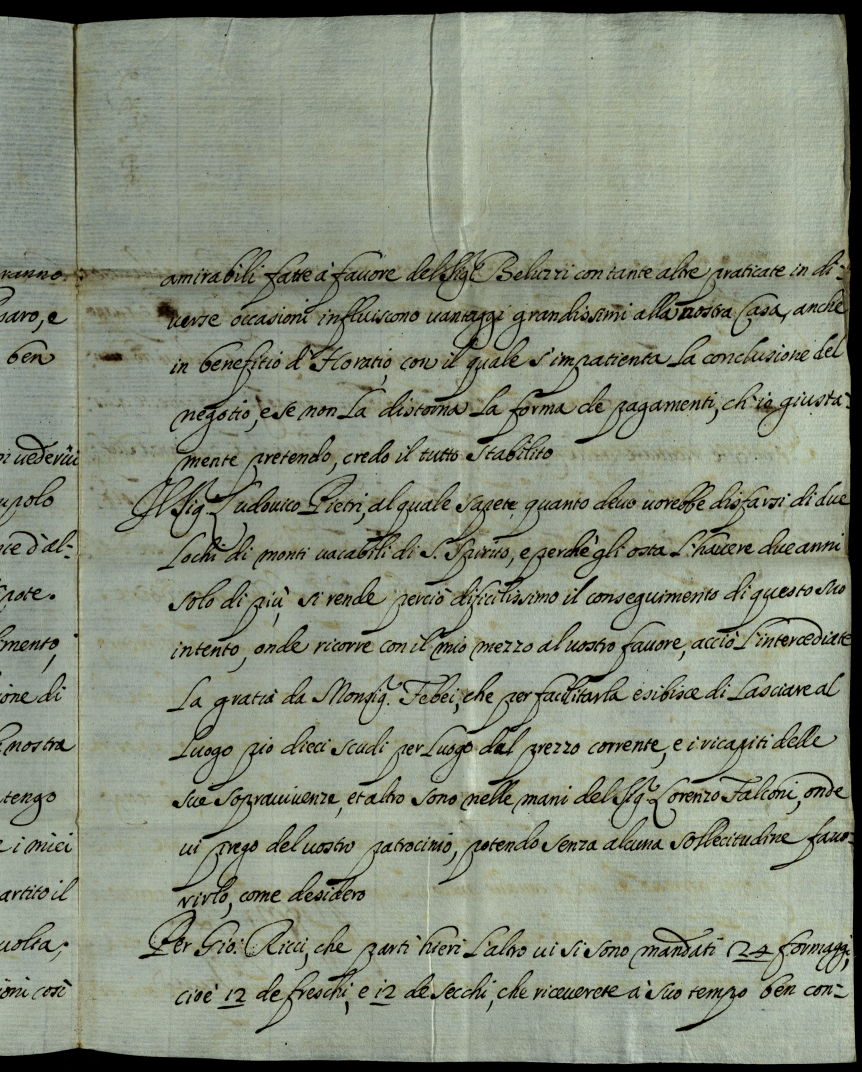 ranno
saro, e
ben
n vederüi
upolo
nce d'al-
pote.
lmento,
ione di
nostra
tengo
e i miei
artito il
uolta;
ioni così
amirabili fatte à fauore del Sigr Beluzzi con tante altre praticate in di-
uerse occasioni influiscono uantaggi grandissimi alla nostra Casa, anche
in benefitio d'Horatio, con il quale s'impatienta la conclusione del
negotio, e se non la distorna la forma de pagamenti, ch'io giusta-
mente pretendo, credo il tutto stabilito
Il Sigr Ludouico Pietri, al quale sapete quanto deuo uorebbe disfarsi di due
lochi di monti uacabili di S. Spirito, e perchè gli osta l'hauere due anni
solo di più si rende perciò dificilissimo il conseguimento di questo suo
intento, onde ricorre con il mio mezzo al uostro fauore, acciò l'intercediate
la gratia da Monsigr. Febei, che per facilitarla esibisce di lasciare al
luogo pio dieci scudi per luogo dal prezzo corrente, e i ricapiti delle
sue soprauiuenze, et altro sono nelle mani del Sigr Lorenzo Falconi, onde
ui prego del uostro patrocinio, potendo senza alcuna sollecitudine fauo-
rirlo, come desidero
Per Gio: Ricci, che partì hieri l'altro ui si sono mandati 24 formaggi,
cioè 12 de freschi, e 12 de secchi, che riceuerete à suo tempo ben con-